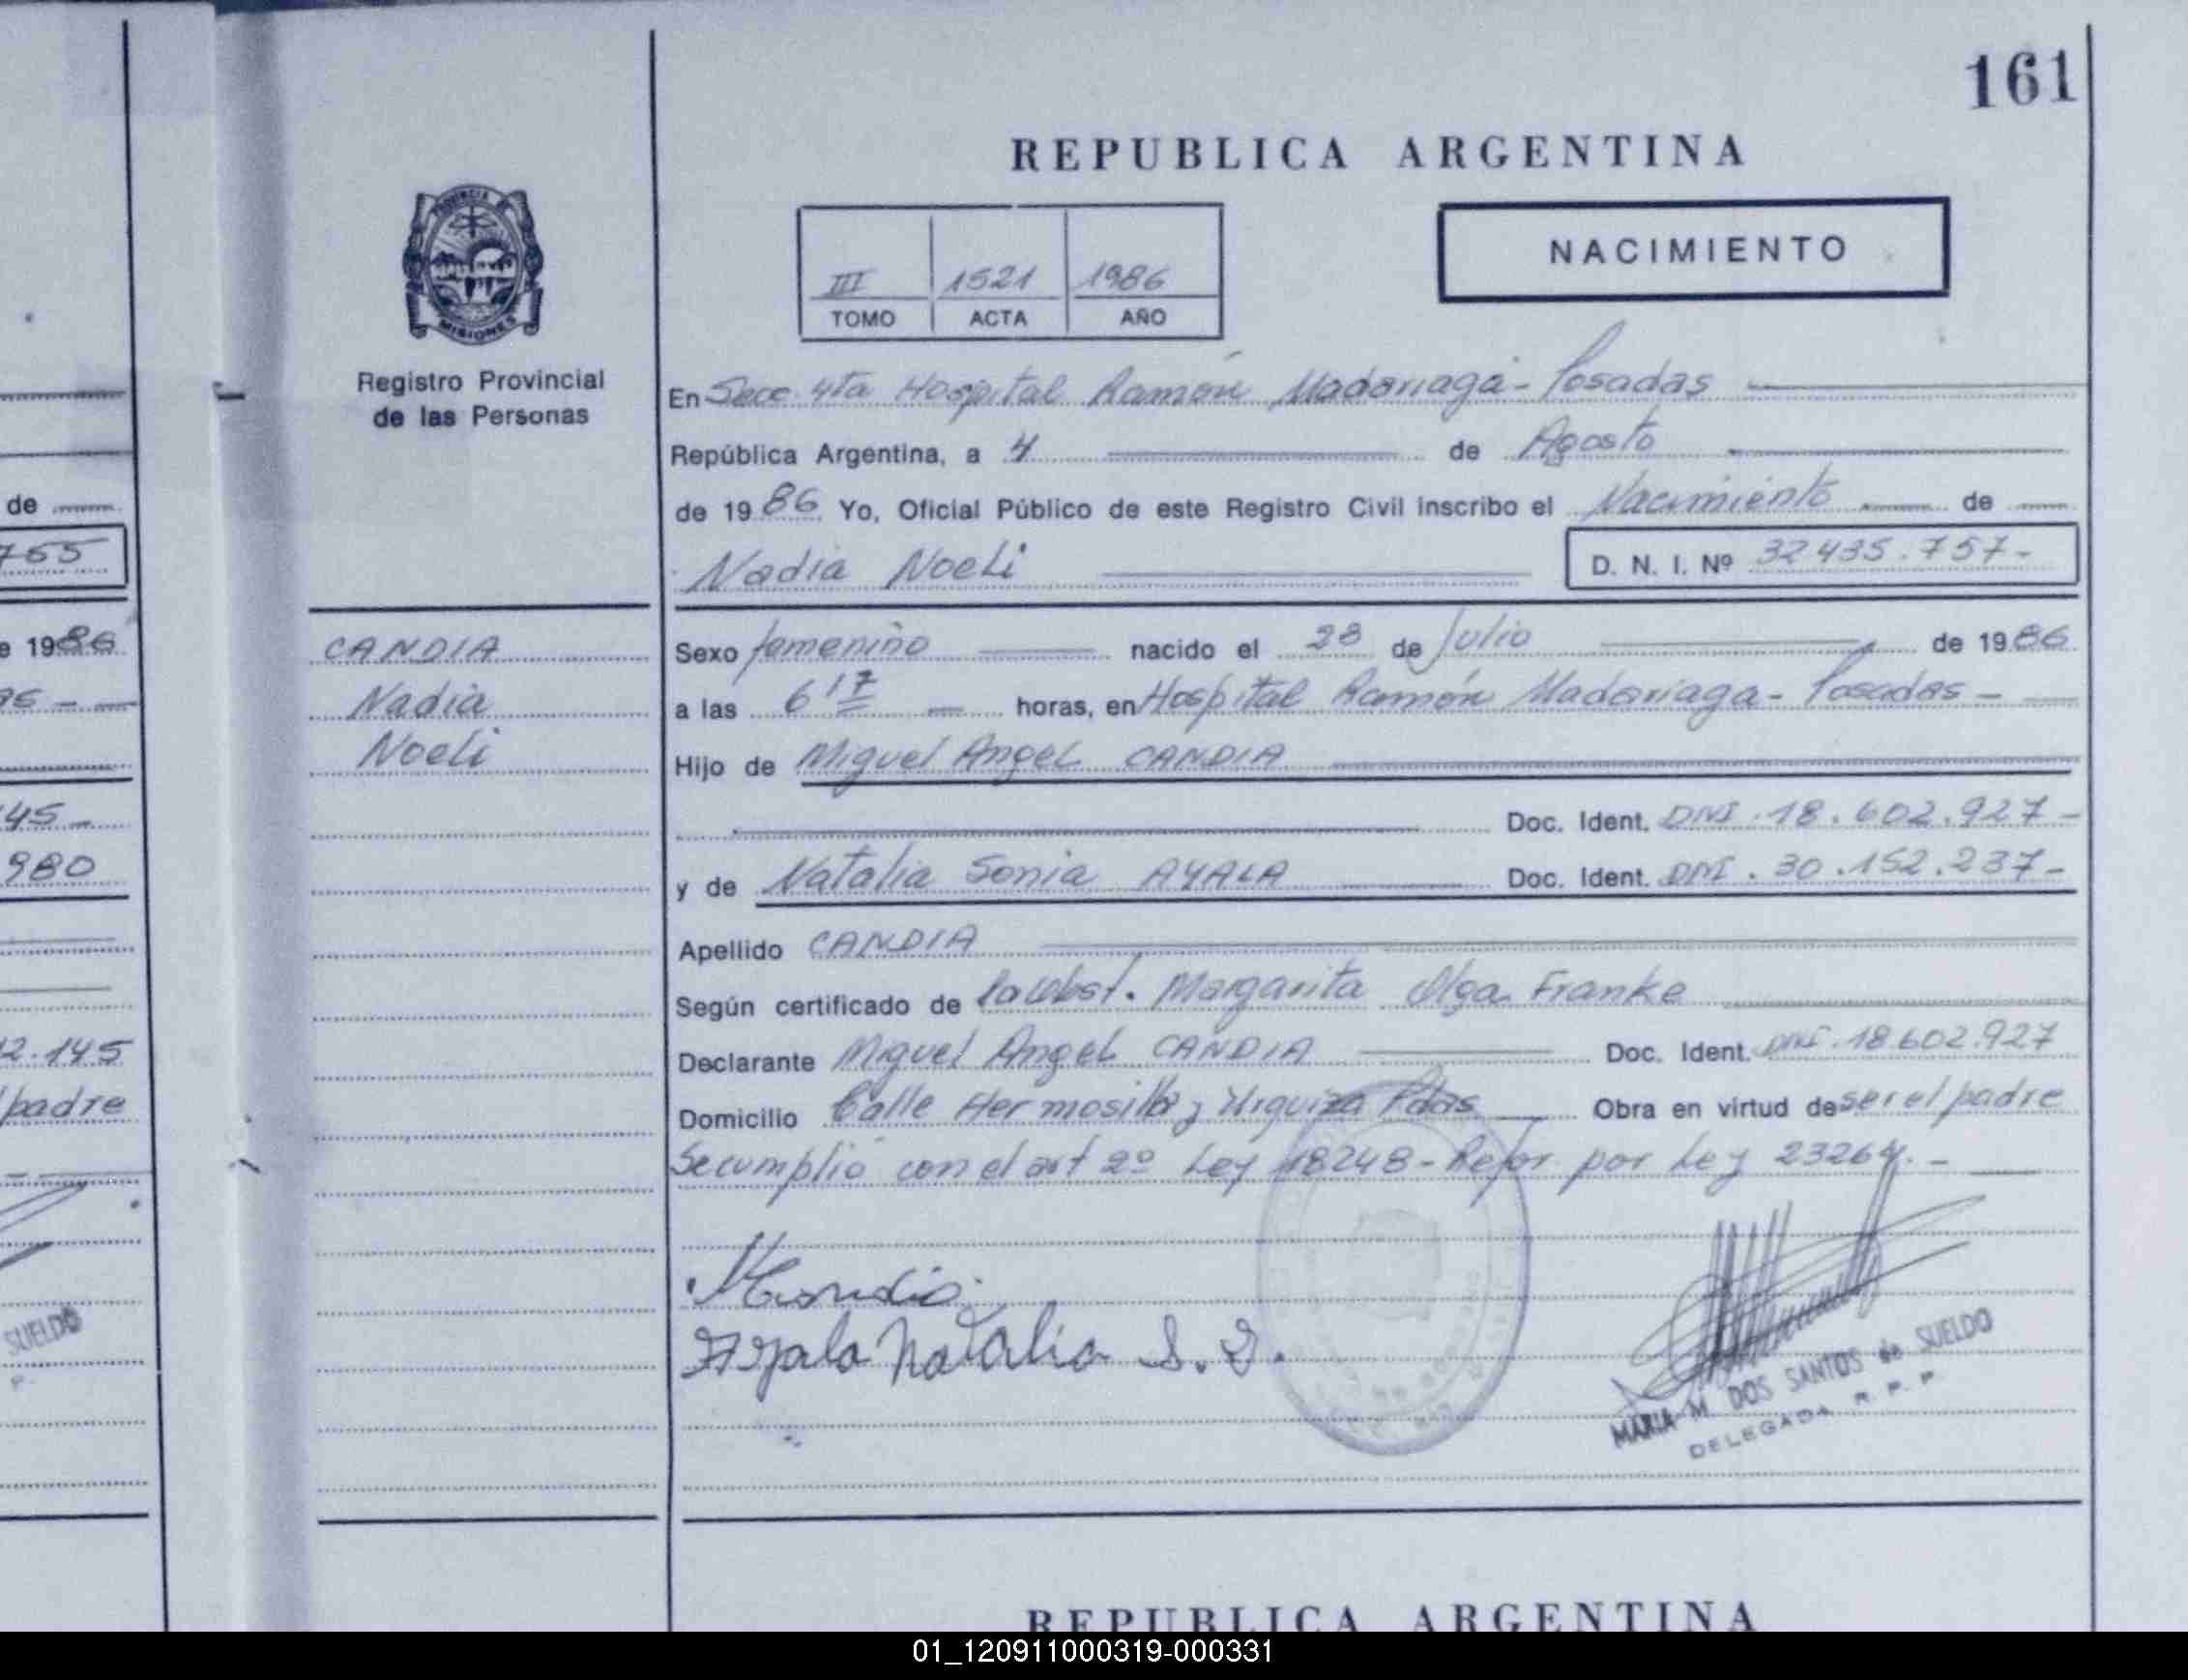 161
REPUBLICA ARGENTINA
NACIMIENTO
III 1521 1986
TOMO ACTA AÑO
PROVINCIA DE
MISIONES
Registro Provincial
de las Personas
En Secc. 4ta Hospital Ramón Madariaga - Posadas
República Argentina, a 4 de Agosto
de 1986 Yo, Oficial Público de este Registro Civil Inscribo el Nacimiento de
Nadia Noeli D. N. I. Nº 32435.757-
CANDIA
Nadia
Noeli
Sexo femenino nacido el 28 de Julio de 1986
a las 6 17 horas, en Hospital Ramón Madariaga - Posadas -
Hijo de Miguel Angel CANDIA
Doc. Ident. DNI. 18.602.927-
y de Natalia Sonia AYALA Doc. Ident. DNI. 30.152.237-
Apellido CANDIA
Según certificado de Margarita Olga Franke
Declarante Miguel Angel CANDIA Doc. Ident. DNI. 18602.927
Domicilio Calle Hermosilla y Urquiza Pdas Obra en virtud de ser el padre
Se cumplió con el art 2º Ley 18248 - Refor. por Ley 23264. -
Ayala Natalia S.
MARIA M DOS SANTOS de SUELDO
DELEGADA R. P. P
de
765
e 1986
96 -
145 -
980
2.145
padre
SUELDO
P.
REPUBLICA ARGENTINA
01_120911000319-000331